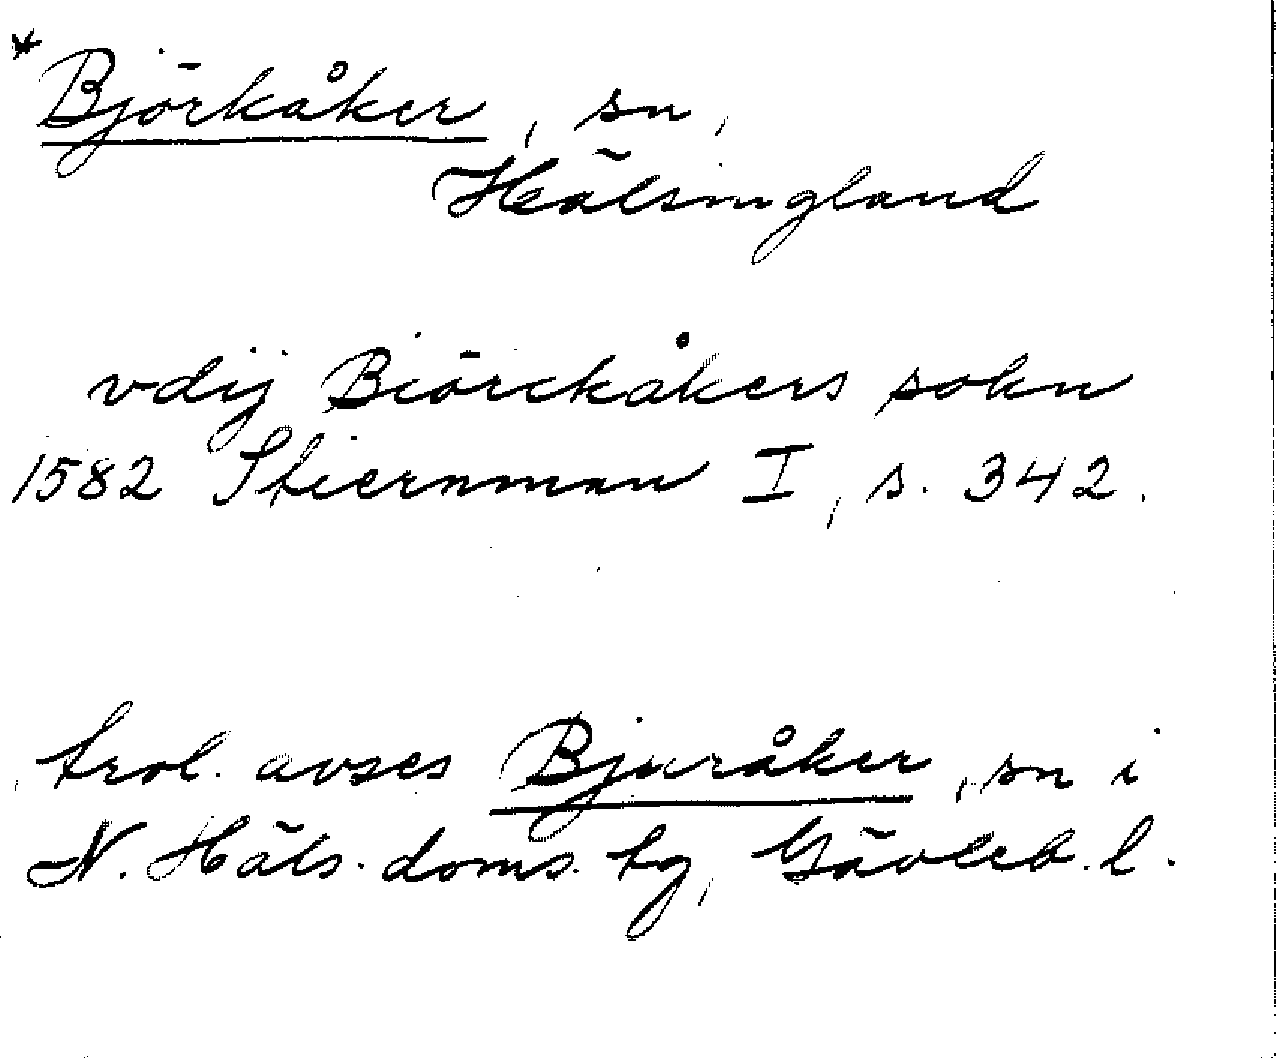 *Björkåker, sn,
Hälsingland
vdij Biörckåkers sokn
1582 Stiernman I, s. 342.
trol. avses Bjuråker, sn i
N. Häls. doms. tg, Gävleb. l.